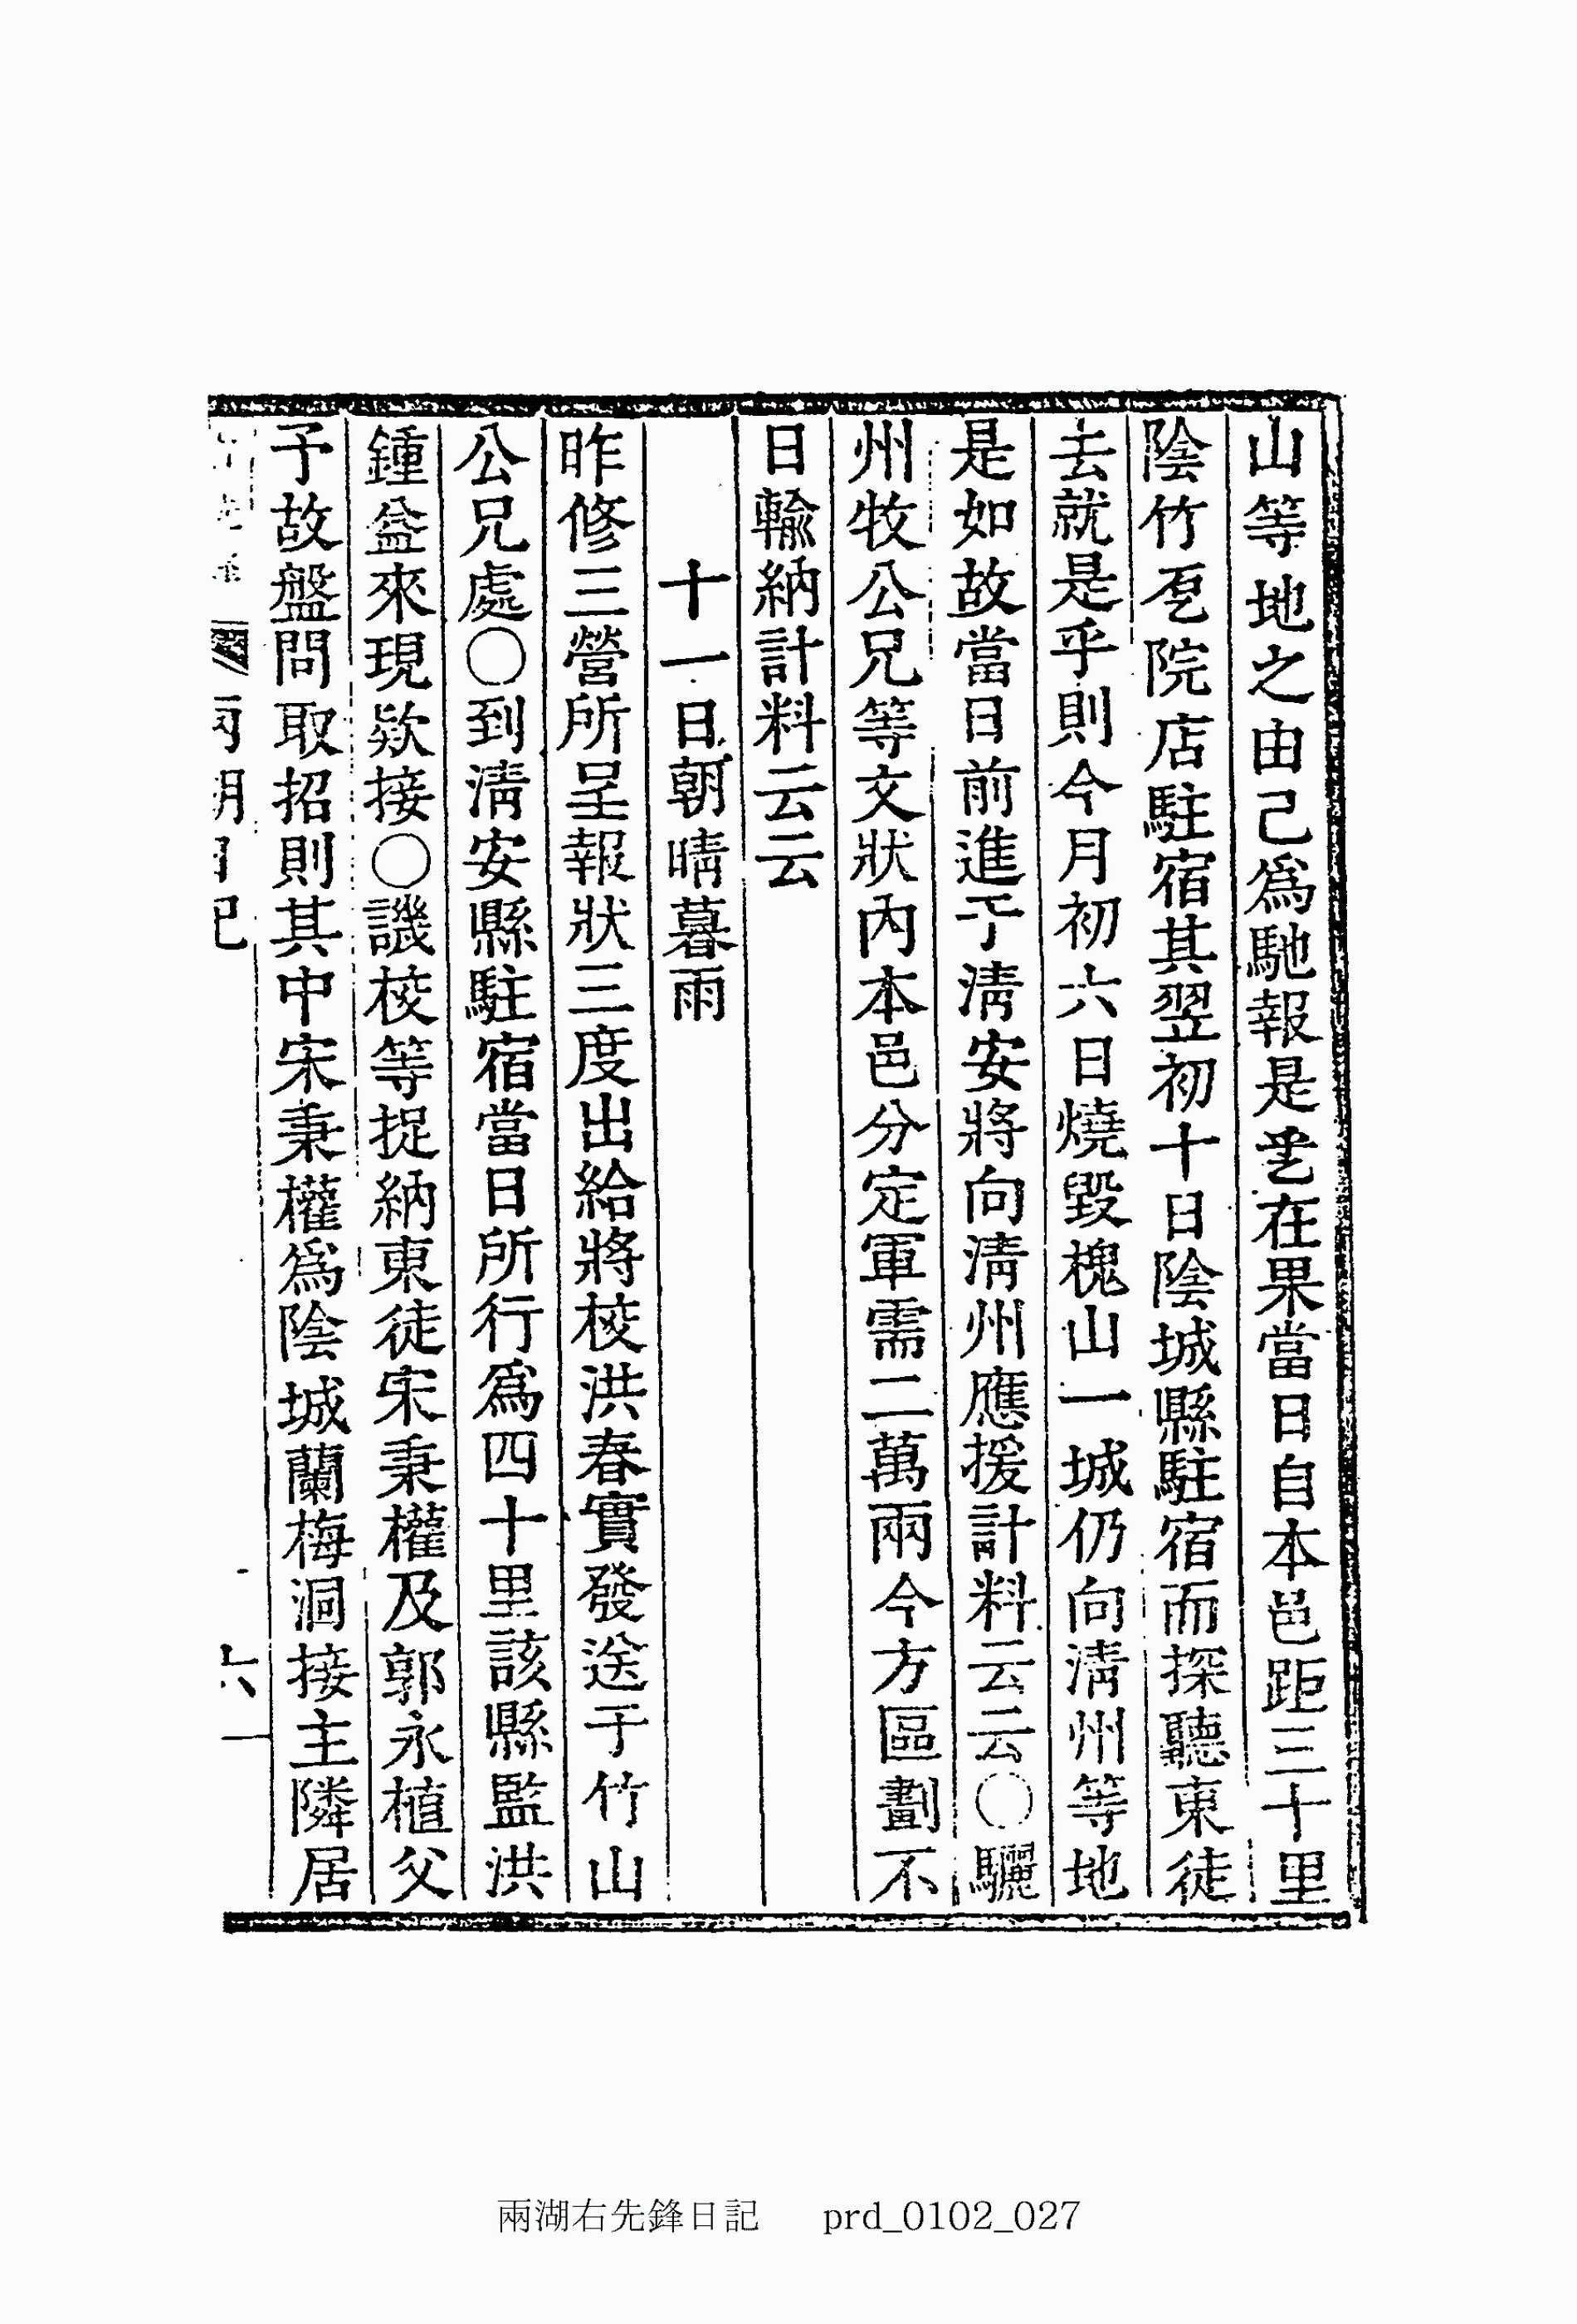 山等地之由己爲馳報是乼在果當日自本邑距三十里
陰竹㐗院店駐宿其翌初十日陰城縣駐宿而探聽東徒
去就是乎則今月初六日燒毁槐山一城仍向淸州等地
是如故當日前進于淸安將向淸州應援計料云云○驪
州牧公兄等文狀內本邑分定軍需二萬兩今方區劃不
日輸納計料云云
十一日朝晴暮雨
昨修三營所呈報狀三度出給將校洪春實發送于竹山
公兄處○到淸安縣駐宿當日所行爲四十里該縣監洪
鍾益來現欵接○譏校等捉納東徒宋秉權及郭永植父
子故盤問取招則其中宋秉權爲陰城蘭梅洞接主隣居
六一
兩湖右先鋒日記 prd_0102_027